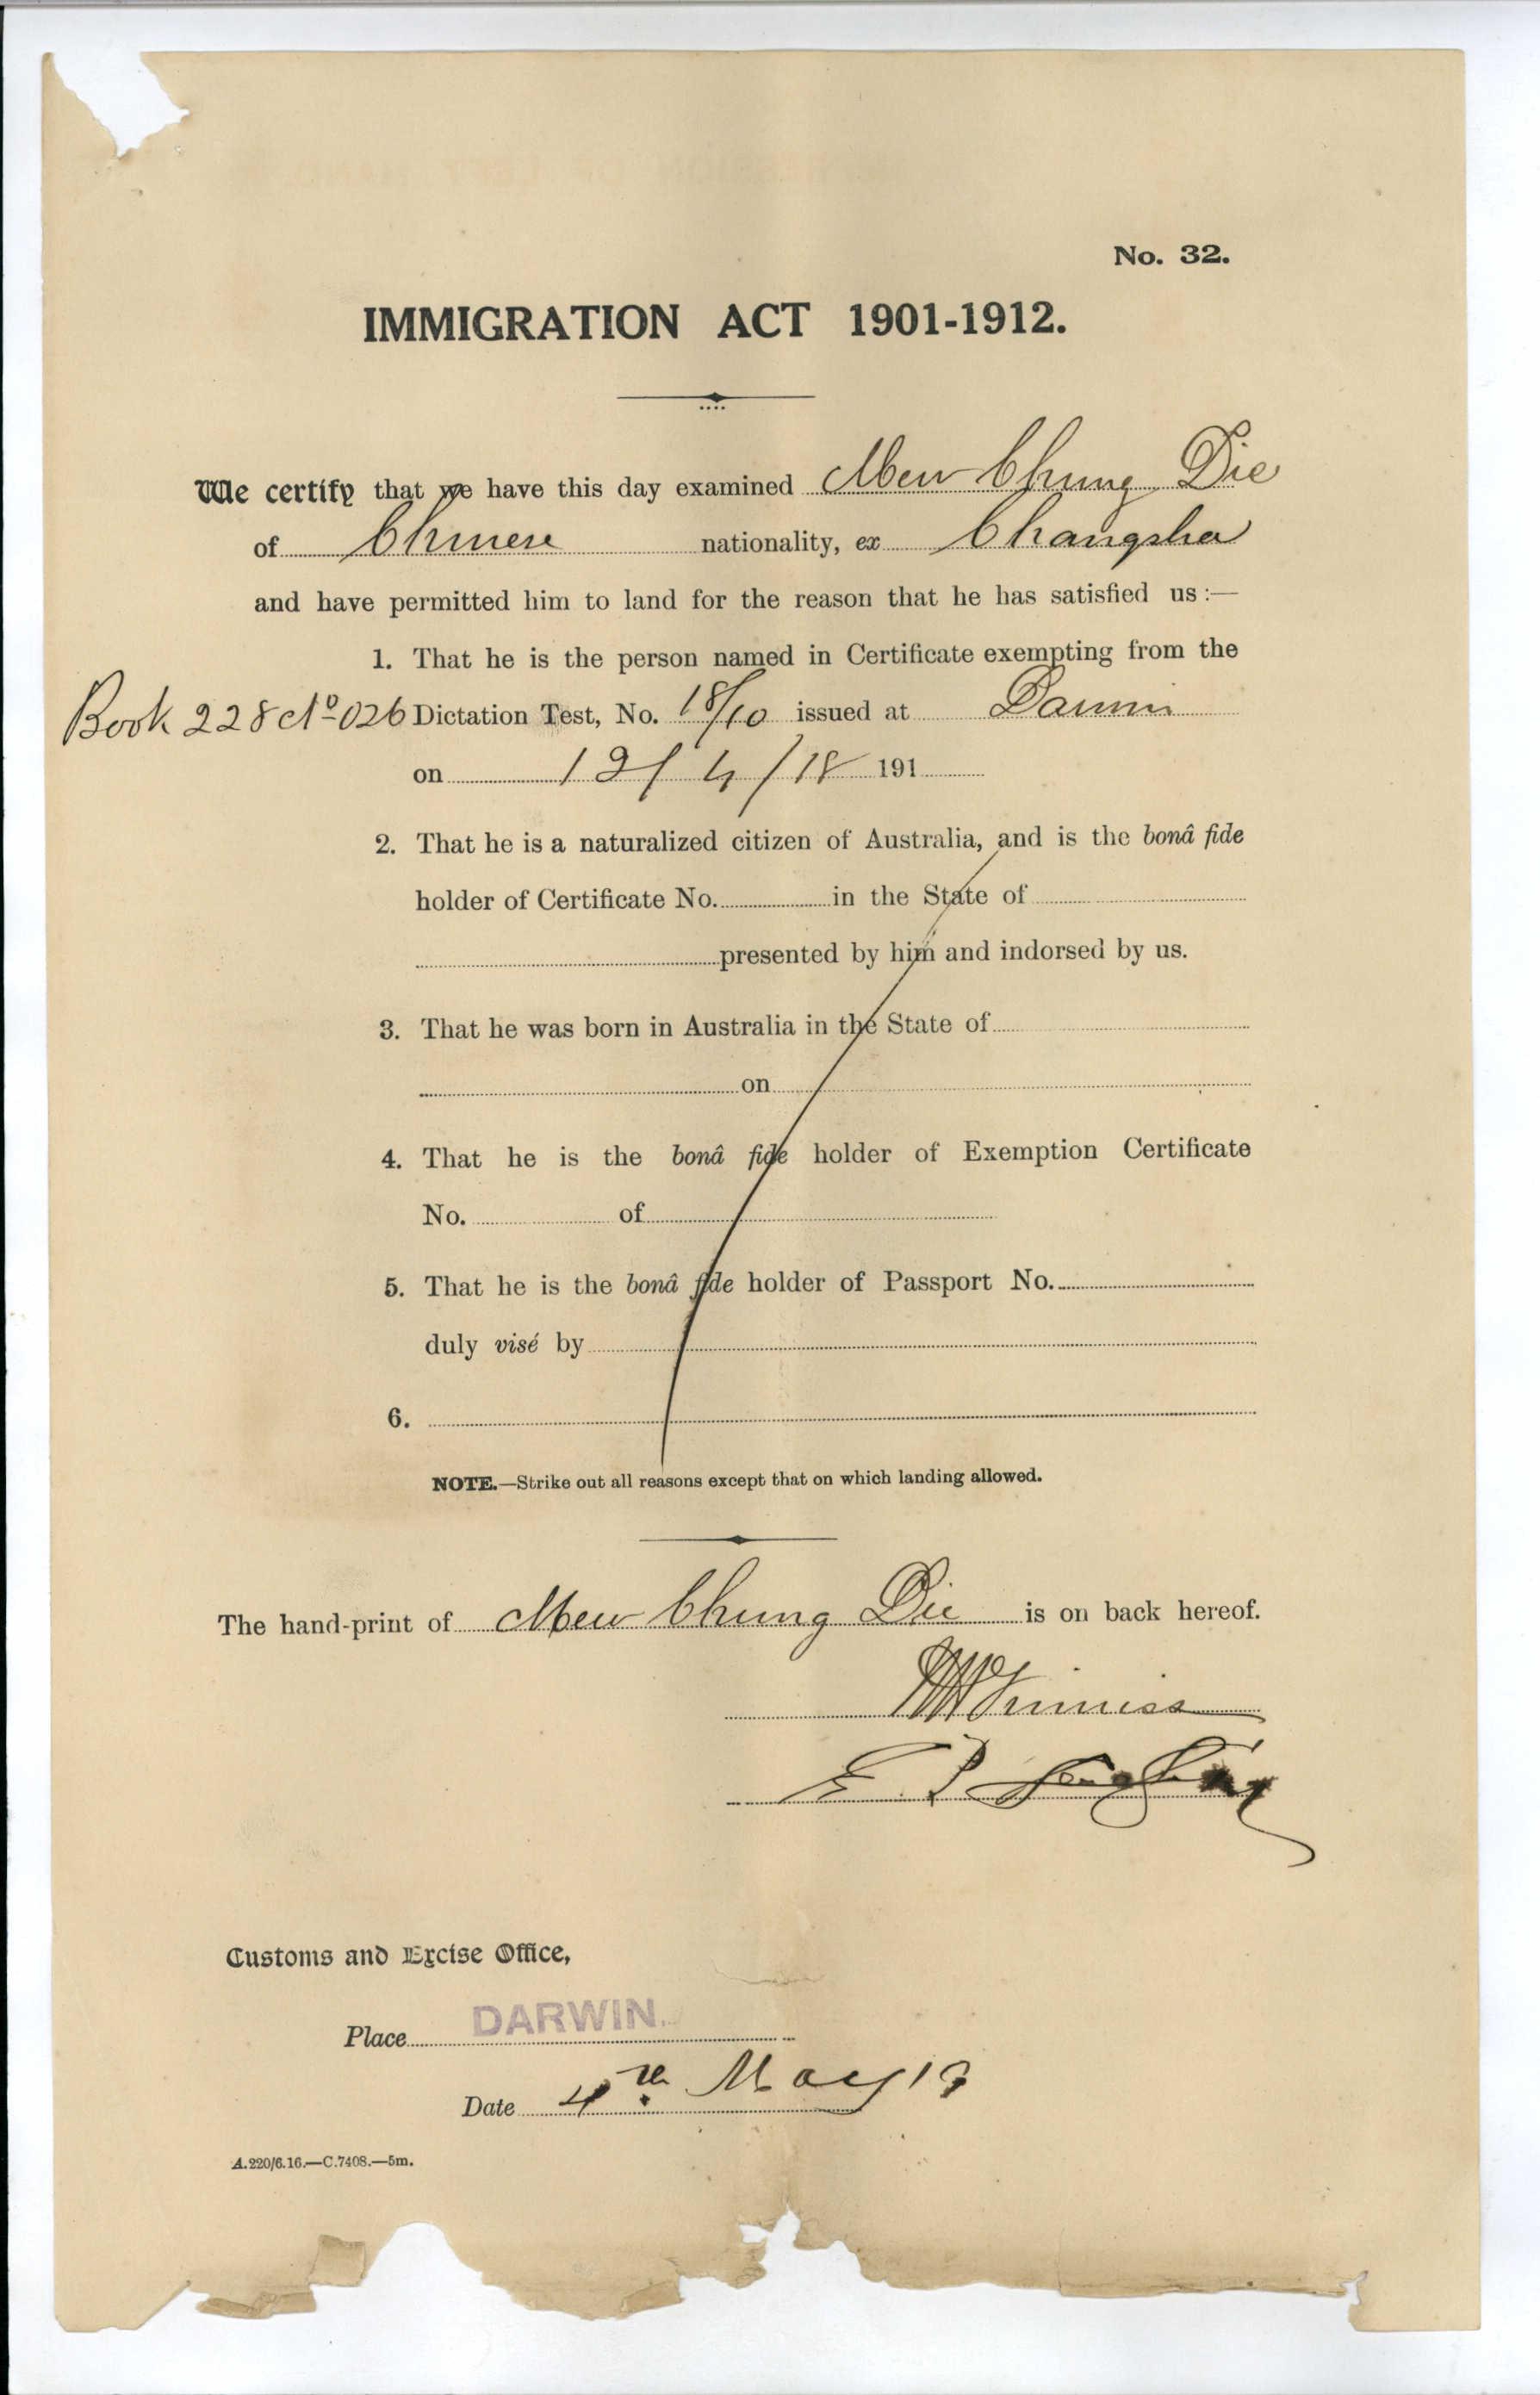 No. 32.
IMMIGRATION ACT 1901-1912.
We certify that we have this day examined Mew Chung Die
of Chinese nationality, ex Changsha
and have permitted him to land for the reason that he has satisfied us :—
1. That he is the person named in Certificate exempting from the
Book 228 No 026 Dictation Test, No. 18/10 issued at Darwin
on 12/4/18 191
2. That he is a naturalized citizen of Australia, and is the bonâ fide
holder of Certificate No. in the State of
presented by him and indorsed by us.
3. That he was born in Australia in the State of
on
4. That he is the bonâ fide holder of Exemption Certificate
No. of
5. That he is the bonâ fide holder of Passport No.
duly visé by
6.
NOTE.—Strike out all reasons except that on which landing allowed.
The hand-print of Mew Chung Die is on back hereof.
Customs and Excise Office,
Place DARWIN.
Date 4th May 19
A.220/6.16.—C.7408.—5m.